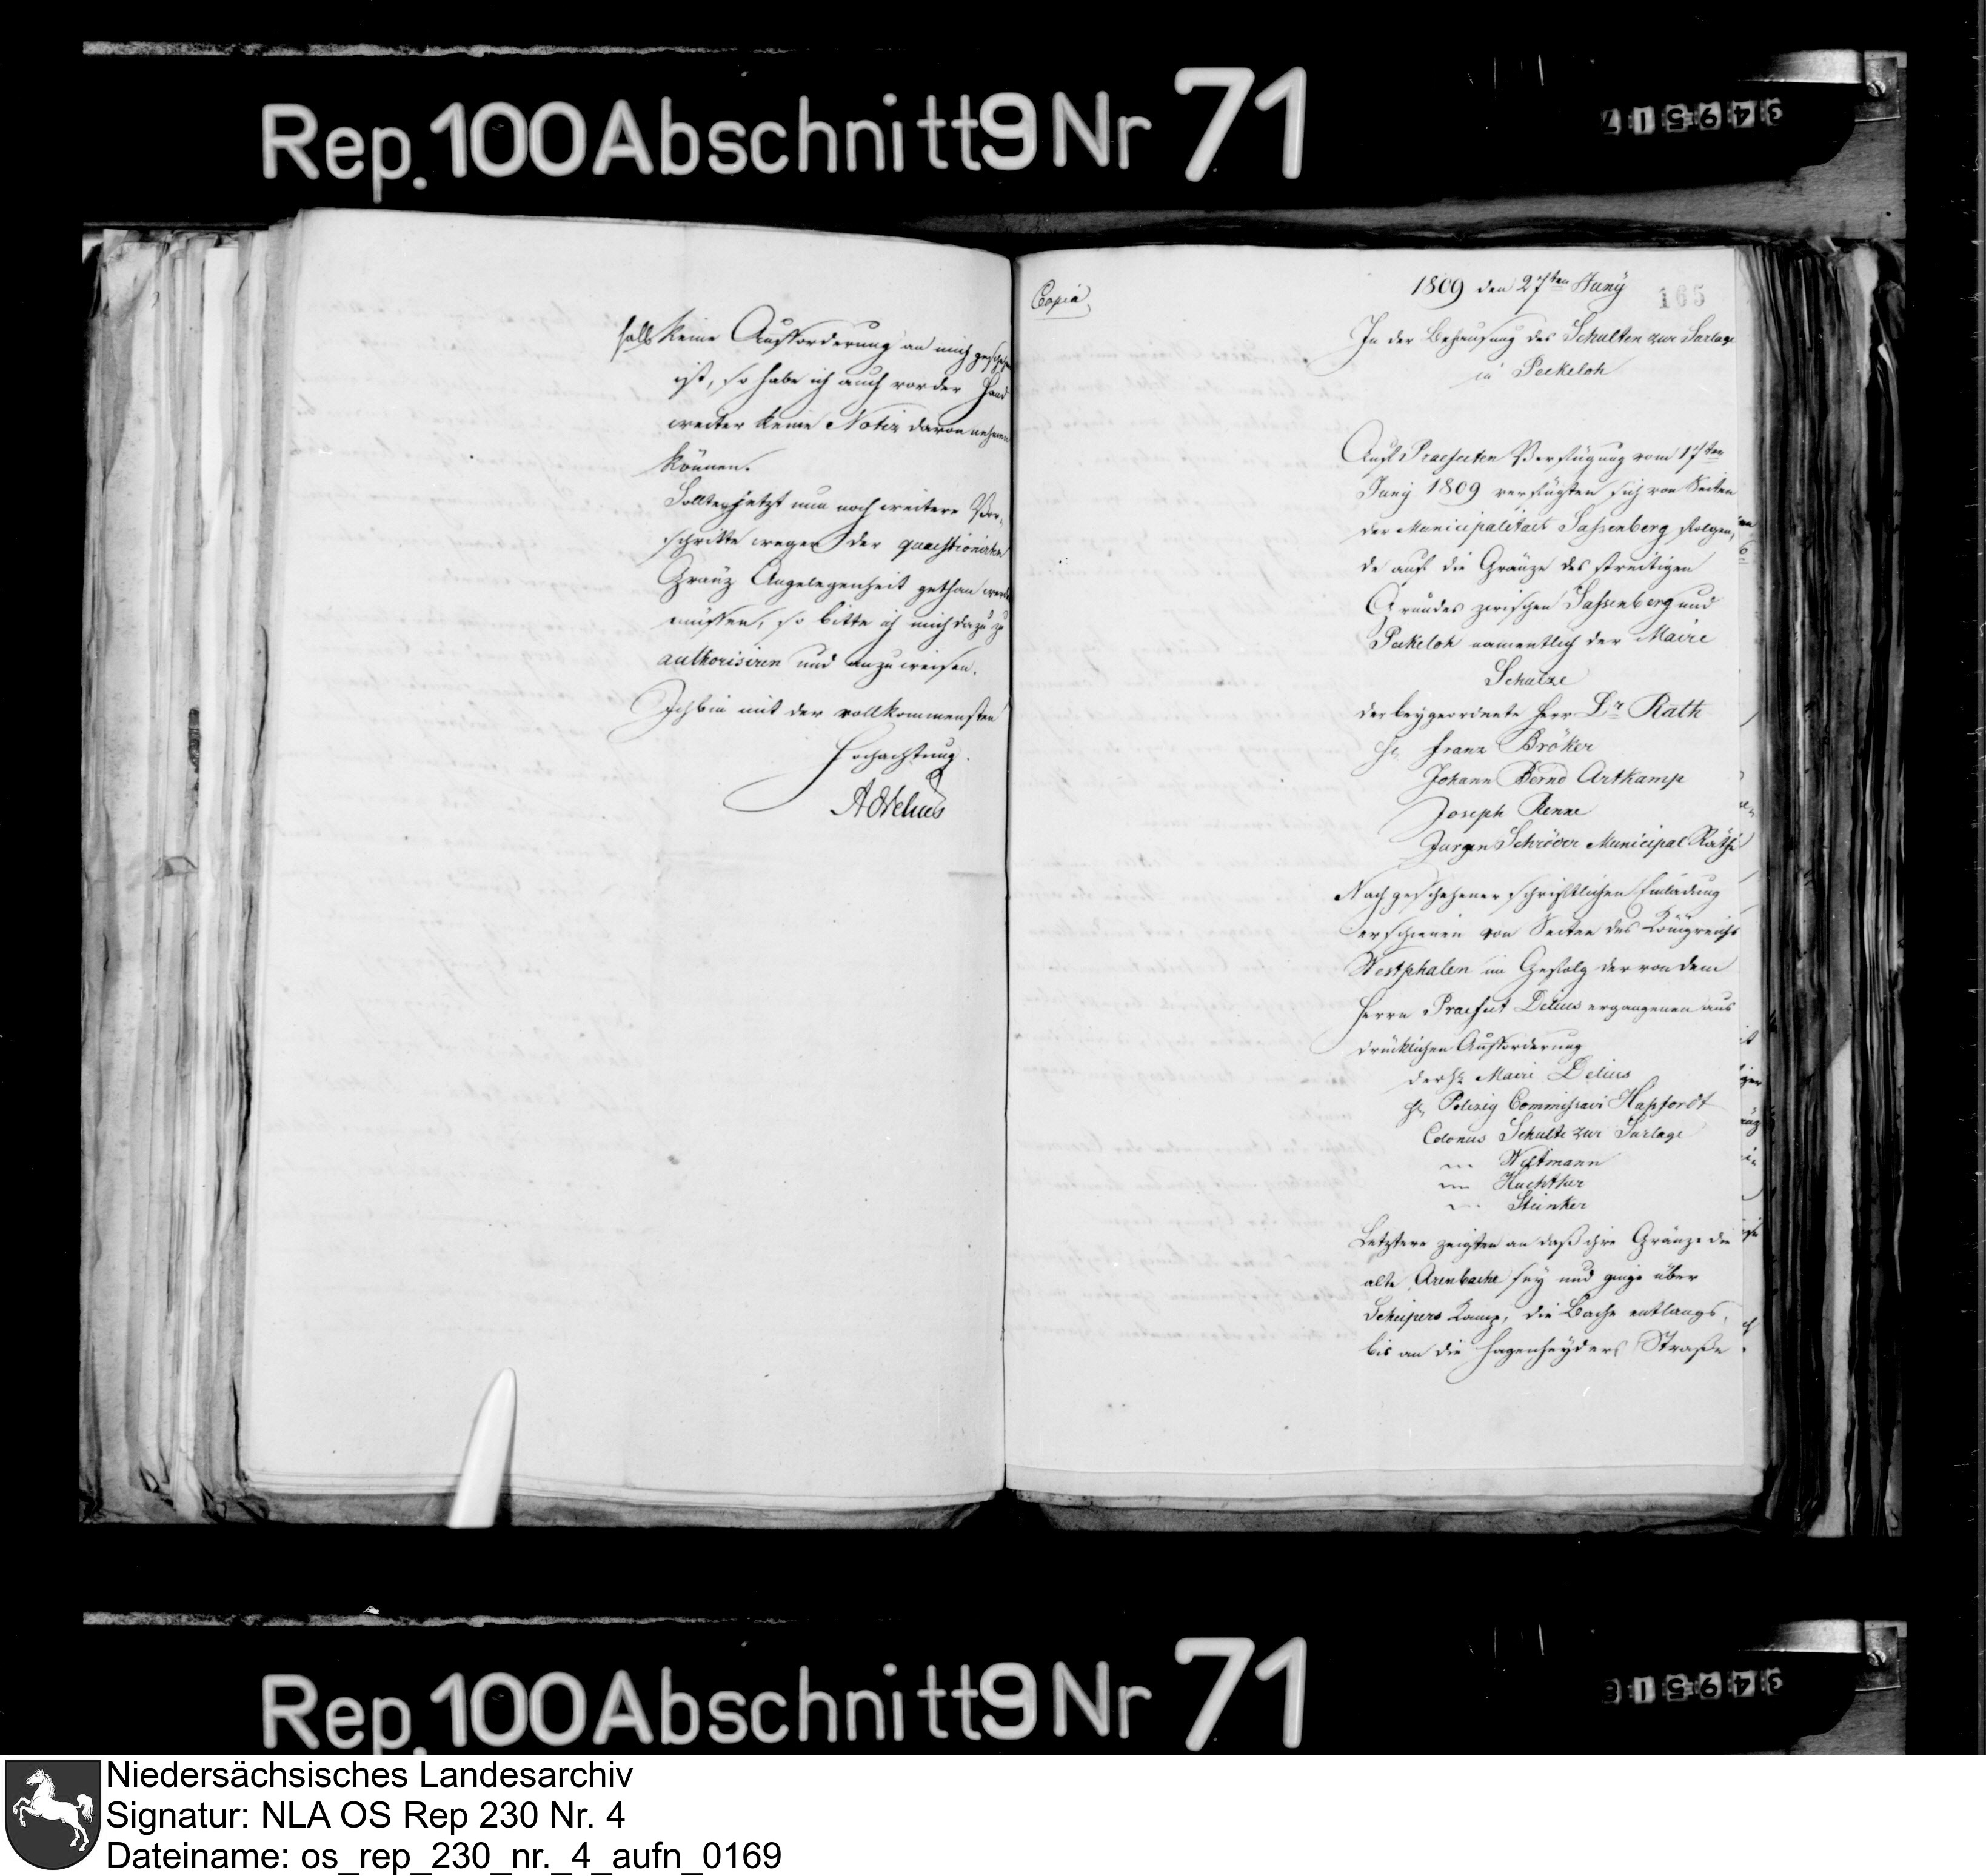 Rep. 100 Abschnitt 9 Nr 71
349517
falls keine Aufforderung an mich geschehen
ist, so habe ich auch vor der Hand
weiter keine Notiz davon nehmen
können.
Sollten jetzt nun noch weitere Vor-
schritte wegen der quaestionirten
Gränz Angelegenheit gethan werden
müssen, so bitte ich mich dazu zu
authorisiren und anzuweisen.
Ich bin mit der vollkommensten
Hochachtung.
Copia
165
1809 den 27ten Juny
In der Behausung des Schulten zur Sarlage
in Peckeloh
Auf Praefecten Verfügung vom 17ten
Juny 1809 verfügten sich von Seiten
der Municipalitaet Sassenberg folgen,
de auf die Gränze des streitigen
Grundes zwischen Sassenberg und
Peckeloh namentlich der Maire
Schulze
der beygeordnete Herr Dr Rath
Hr Franz Bröker
Johann Bernd Artkamp
Joseph Renne
Jurgen Schröder Municipal Räthe
Nach geschehener schriftlichen Einladung
erschienen von Seiten des Königreichs
Westphalen im Gefolg der von dem
Herrn Praefect Delius ergangenen aus
drücklichen Aufforderung
der Hr Maire Delius
Hr Polizey Commissair Hapfordt
Colonus Schulte zur Sarlage
Westmann
Huchtker
Steinker
Letztere zeigten an daß ihre Gränze die
alte Arenbache sey und ginge über
Scheipers Kamp, die Bache entlangs,
bis an die Hagenheyders Straße
Rep. 100 Abschnitt 9 Nr 71
349518
Niedersächsisches Landesarchiv
Signatur: NLA OS Rep 230 Nr. 4
Dateiname: os_rep_230_nr._4_aufn_0169